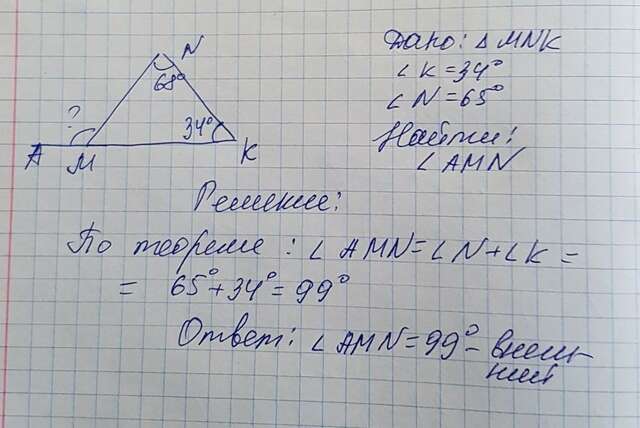 N
65°
?
34°
А М K
Дано: △ MNK
∠ K = 34°
∠ N = 65°
Найти:
∠ AMN
Решение:
По теореме: ∠ AMN = ∠ N + ∠ K =
= 65° + 34° = 99°
Ответ: ∠ AMN = 99° – внеш-
ний